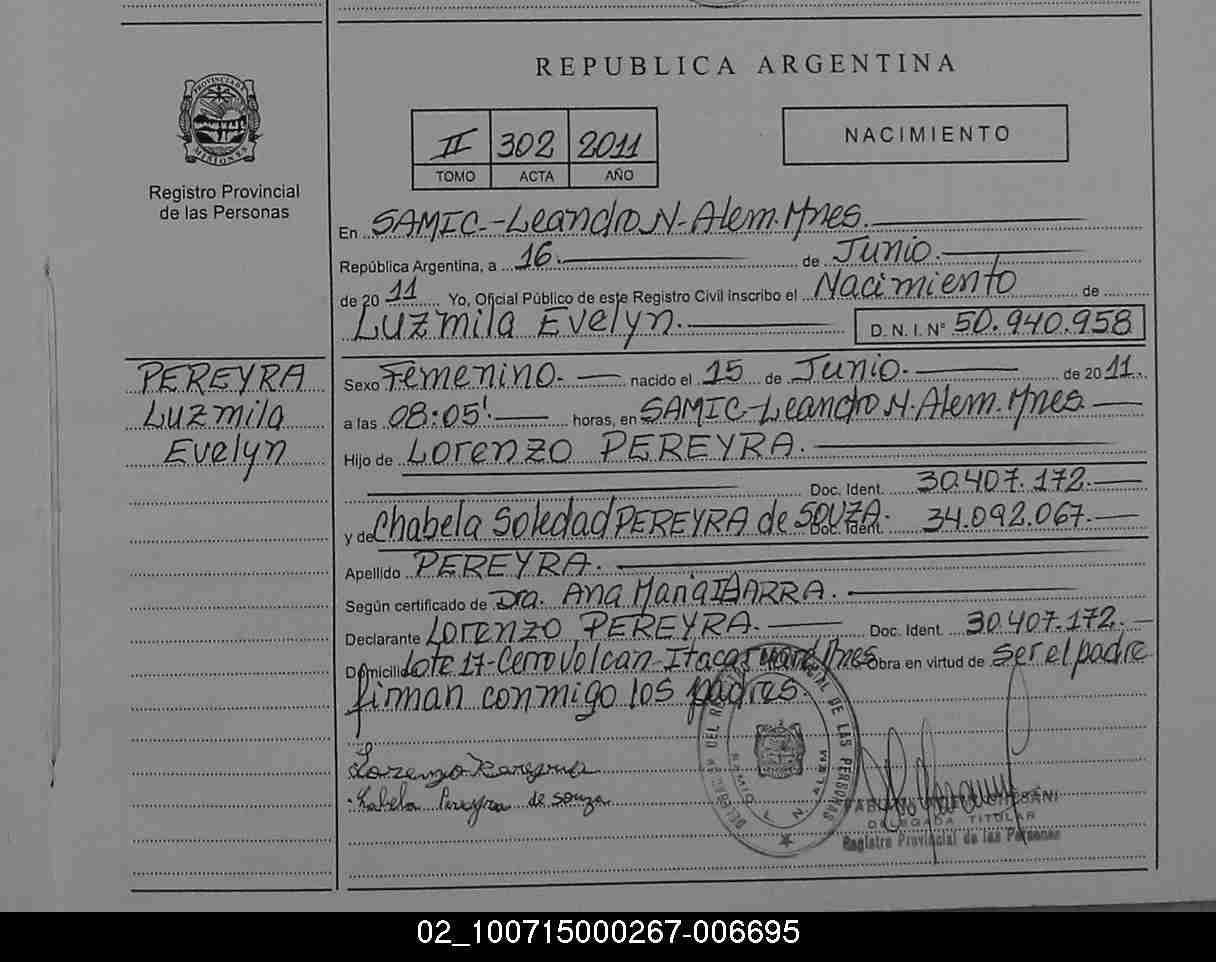 REPUBLICA ARGENTINA
PROVINCIA DE
MISIONES
Registro Provincial
de las Personas
II 302 2011
TOMO ACTA AÑO
NACIMIENTO
En SAMIC.-Leandro N-Alem.Mnes.
República Argentina, a 16. de Junio.
de 2011 Yo, Oficial Público de este Registro Civil inscribo el Nacimiento de
Luzmila Evelyn. D. N. I. N° 50.940.958
PEREYRA
Luzmila
Evelyn
Sexo Femenino. nacido el 15 de Junio. de 2011.
a las 08:05'. horas, en SAMIC-Leandro N-Alem. Mnes
Hijo de Lorenzo PEREYRA.
Doc. Ident. 30.407.172.
y de Chabela Soledad PEREYRA de SOUZA. Doc. Ident. 34.092.067.
Apellido PEREYRA.
Según certificado de Dra. Ana Maria IBARRA.
Declarante Lorenzo PEREYRA. Doc. Ident. 30.407.172.
Domicilio Lote 17-Cerro Volcan-Itacaruaré Mnes Obra en virtud de ser el padre
firman conmigo los padres.
Lorenzo Pereyra
Pereyra de souza
DE LAS PERSONAS
N. ALEM
DELEGADA TITULAR
Registro Provincial de las Personas
02_100715000267-006695